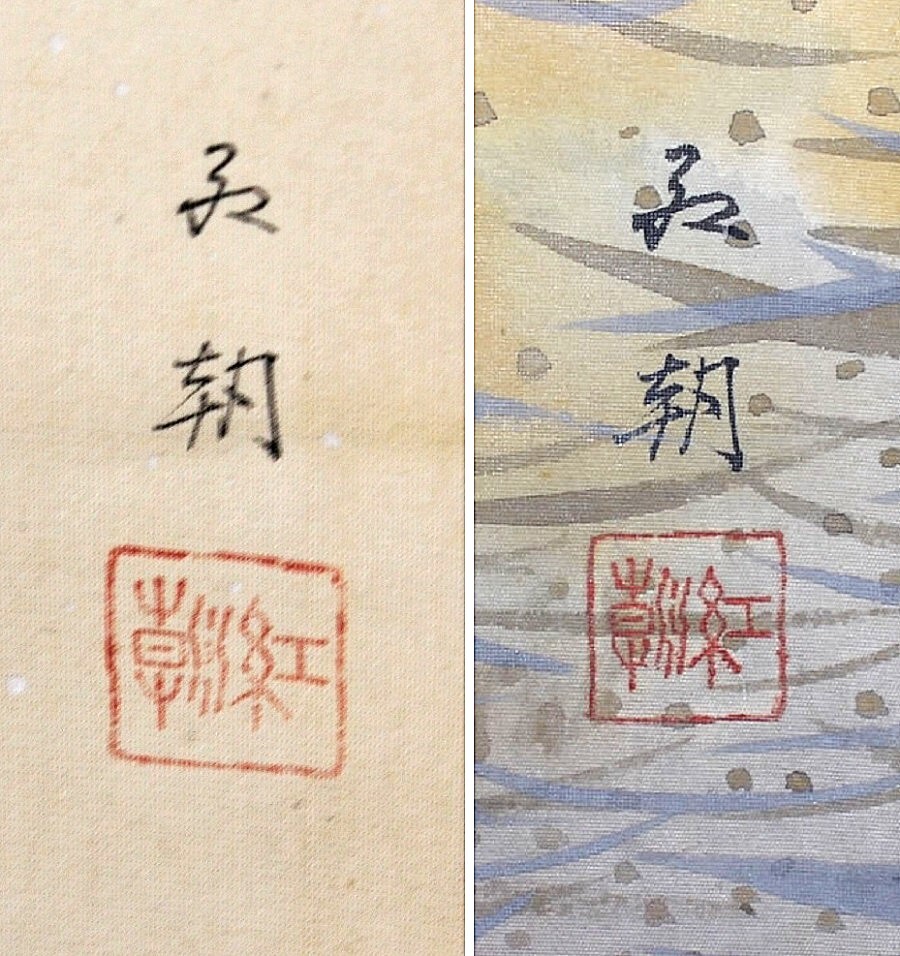 紅朝
紅朝
紅朝
紅朝